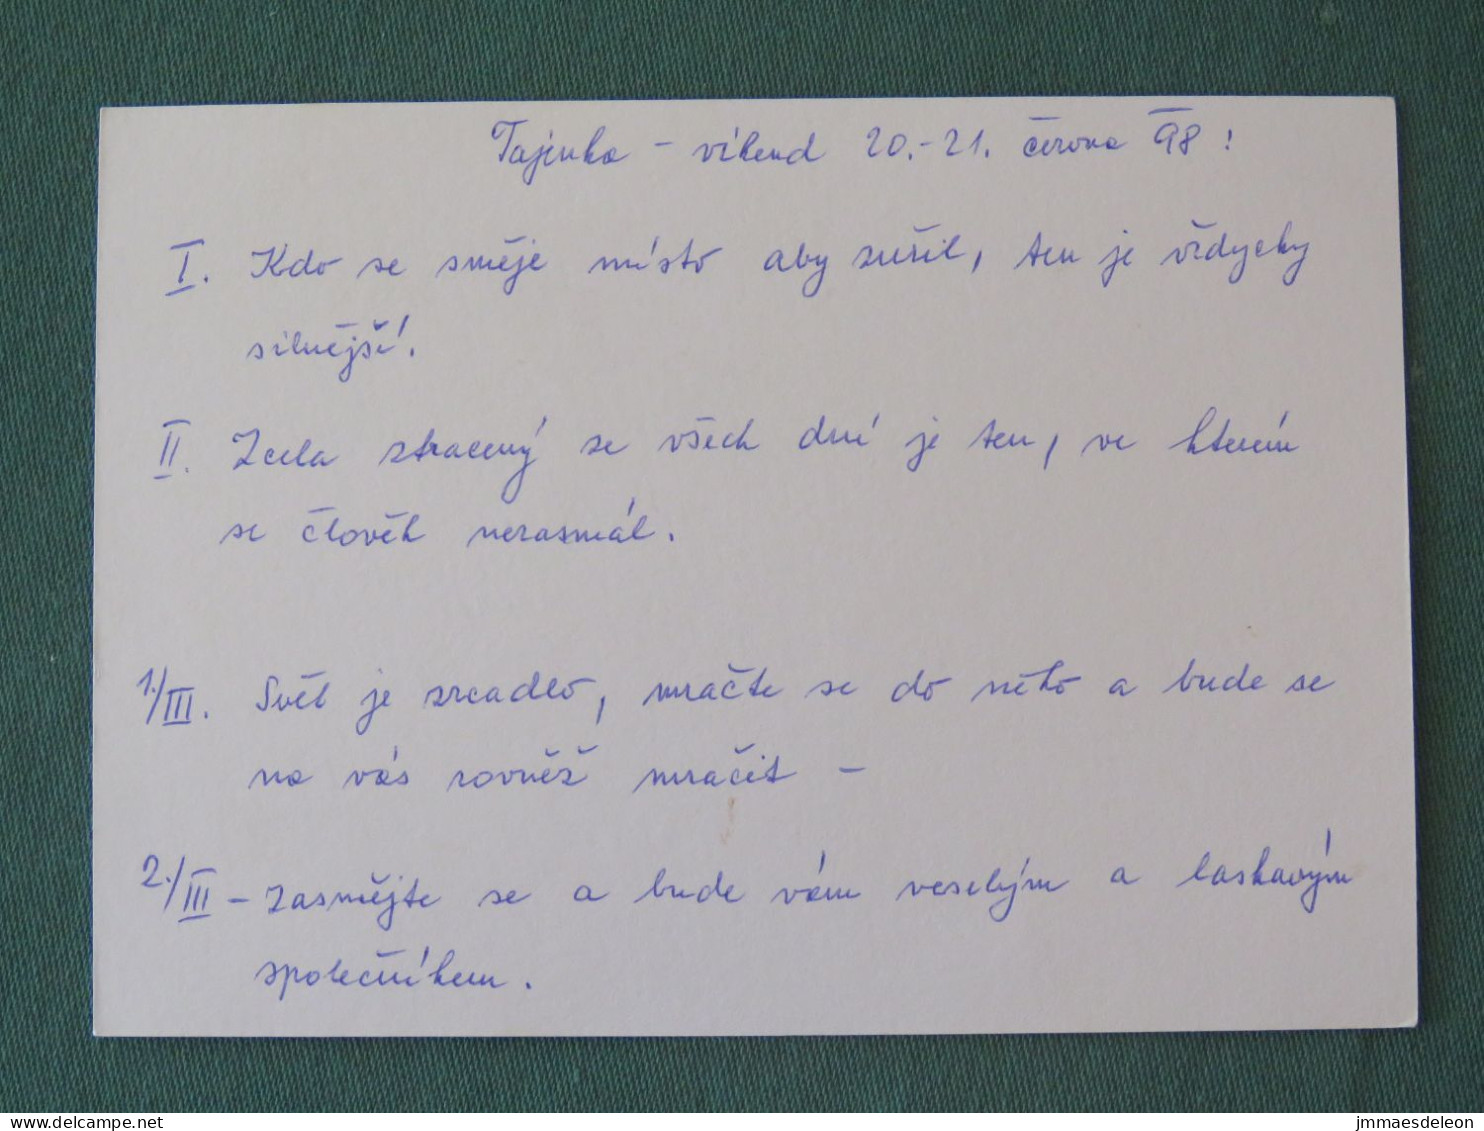 Tajenka - víkend 20.-21. června 98!
I. Kdo se směje místo aby zuřil, ten je vždycky
silnější.
II. Zcela ztracený ze všech dní je ten, ve kterém
se člověk nezasmál.
1./III. Svět je zrcadlo, mračte se do něho a bude se
na vás rovněž mračit -
2./III - Zasmějte se a bude vám veselým a laskavým
společníkem.
www.delcampe.net
jmmaesdeleon